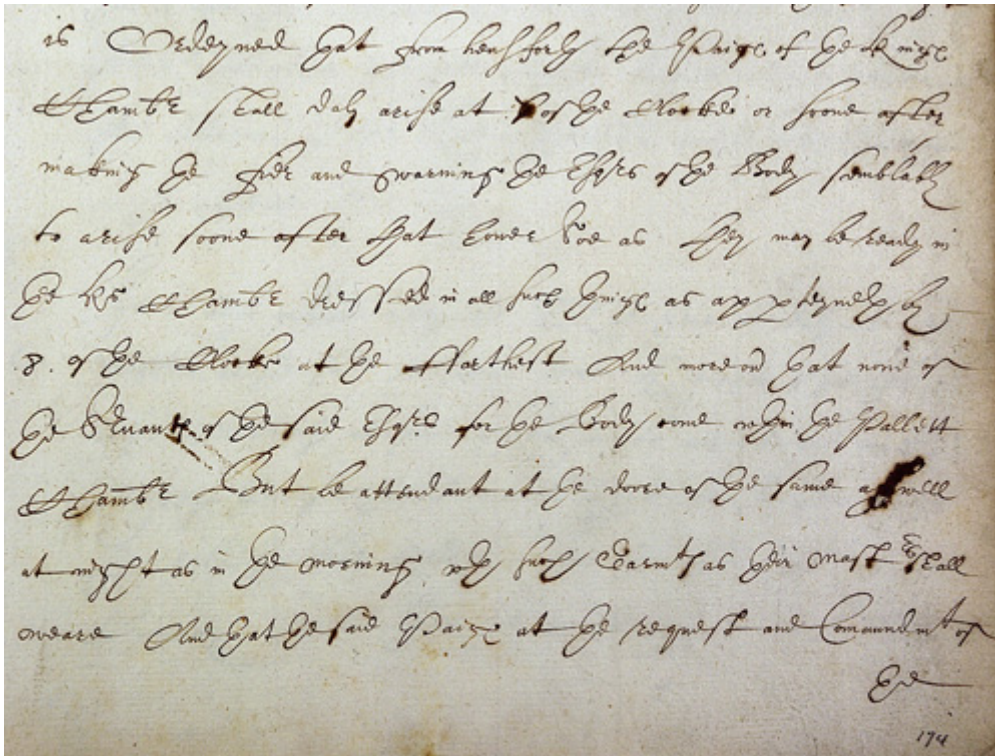 is Ordeyned that from hensforth the Paiges of the kinges
Chambr shall daly arise at of the Clocke or soone after
making the fier and warning the Esqrs of the Body semblably
to arise soone after that hower Soe as they may be ready in
the ks Chambr dressed in all such thinges as apperteyneth by
8. of the Clocke at the ffarthest And moreovr that none of
the Servants of the said Esqrs for the Body come wthin the Pallett
Chambr But be attendant at the doore of the same aswell
at night as in the morning wth such Garmts as their mastrs shall
weare And that the said Paiges at the request and Comaundmt of
the
174